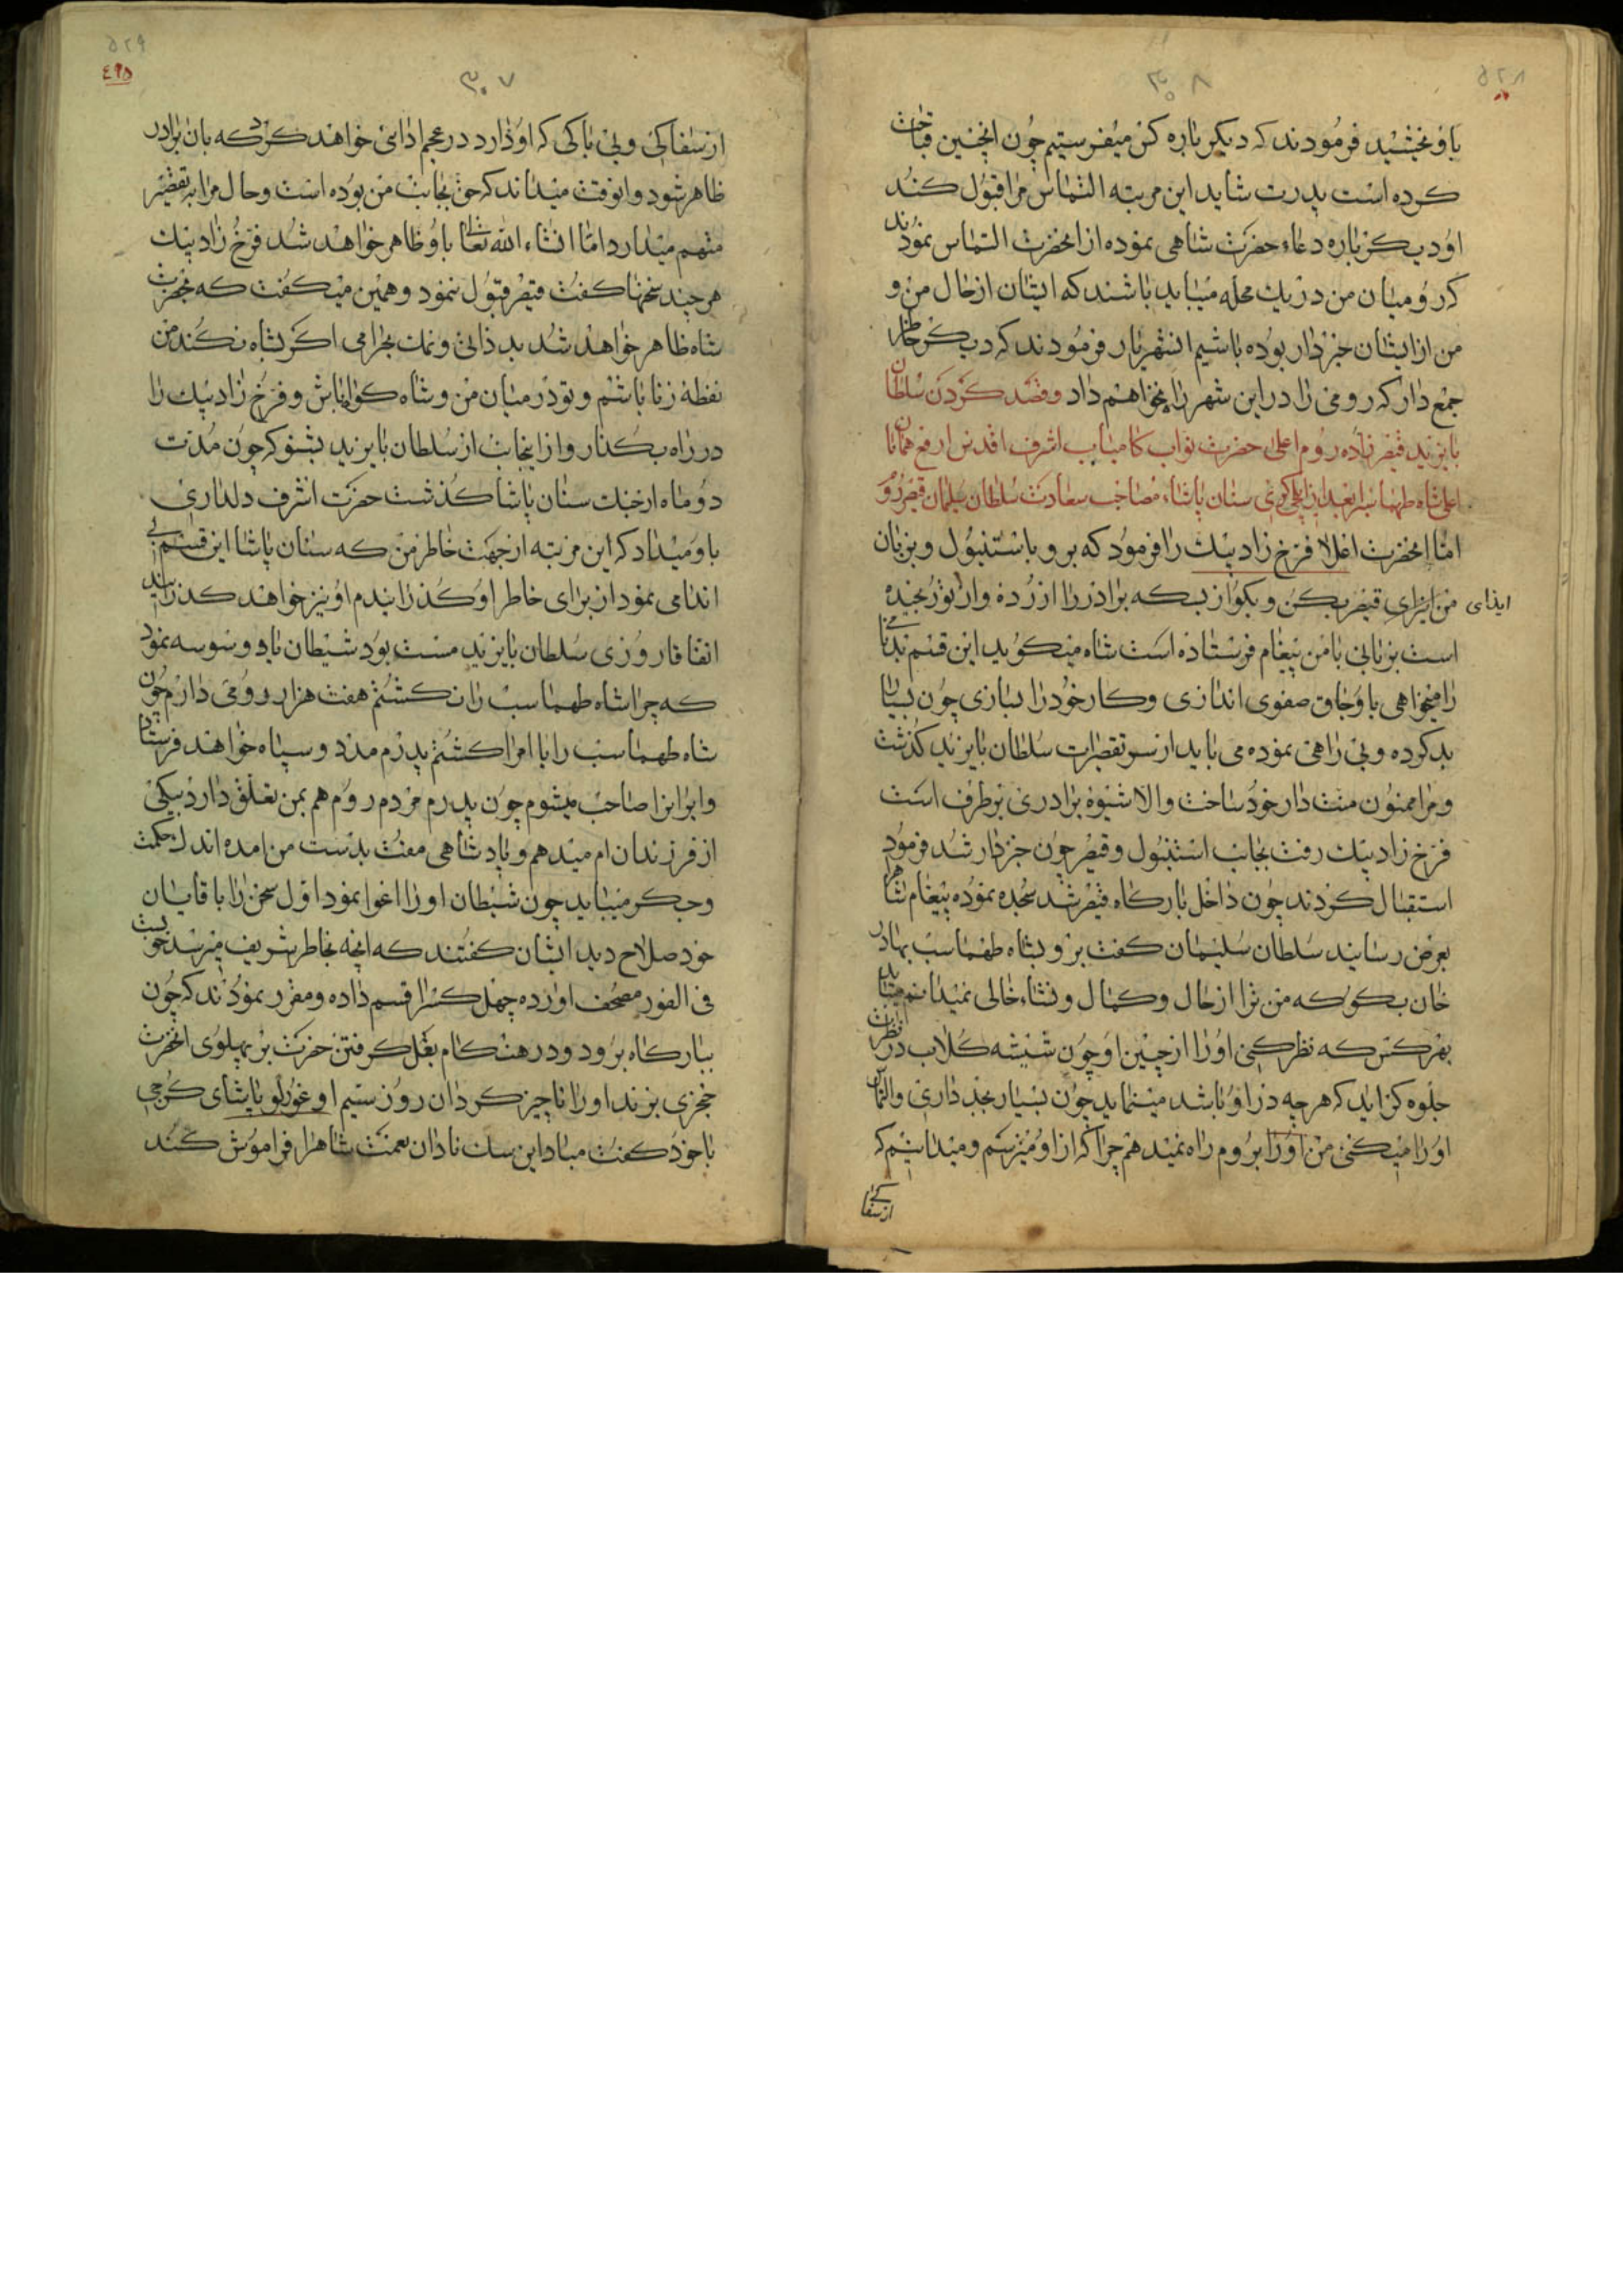 ۵۲۸
۳۰۸
باو بخشید فرمودند که دیکر باره کس میفرستیم چون اینچنین قباحت
کرده است پدرت شاید این مرتبه التماس مرا قبول کند
او دیکر باره دعاء حضرت شاهی نموده از انحضرت التماس نمودند
که رومیان من در یک محله میباید باشند که ایشان از حال من و
من از ایشان خبردار بوده باشیم انشهریار فرمودند که دیکر خاطر
جمع دار که رومی را در این شهر راه نخواهم داد وقصد کردن سلطان
بایزید قیصرزاده روم اعلی حضرت نواب کامیاب اشرف اقدس ارفع همایون
اعلی شاه طهماسب را بعد از سنان پاشاء مصاحب سعادت سلطان سلیمان قیصر روم
اما انحضرت اغلا فرخ زاد بیک را فرمود که برو باستنبول و بزبان
من ایزای قیصر بکن و بکو از بسکه برادر را ازرده واز تو رنجیده
ایذای
است بزبانی با من پیغام فرستاده است شاه میکوید این قسم بدنامی
را میخواهی باوجاق صفوی اندازی وکار خود را بسازی چون بسیار
بد کرده وبی راهی نموده می باید از سر تقصیرات سلطان بایزید کذشت
ومرا ممنون منت دار خود ساخت والا شیوه برادری برطرف است
فرخ زاد بیک رفت بجانب استنبول وقیصر چون خبردار شد فرمود
استقبال کردند چون داخل بارکاه قیصر شد سجده نموده پیغام شاهرا
بعرض رسانید سلطان سلیمان کفت برو بشاه طهماسب بهادر
خان بکو که من ترا از حال وکمال ونشاء خالی نمیدانم میباید
بهر کس که نظر کنی اورا از جبین او چون شیشه کلاب در نظرت
جلوه کر اید که هر چه در او باشد مینماید چون بسیار بخیه داری والتماس
اورا میکنی من اورا بروم راه نمیدهم چرا که از او میترسم ومیدانیم که
از سفاکی
۵۲۹
۴۹۵
۳۰۷
از سفاکی وبی باکی که او دارد در عجم ادائی خواهند کرد که بان برادر
ظاهر شود وانوقت میداند که حق بجانب من بوده است وحال مرا بتقصیر
متهم میدارد اما انشاء الله تعالی باو ظاهر خواهد شد فرخ زاد بیک
هر چند سخنها کفت قیصر قبول ننمود وهمین میکفت که بحضرت
شاه ظاهر خواهد شد بد ذاتی ونمک بحرامی اکر بشاه نکند من
نطفه زنا باشم وتو در میان من وشاه کواه باش وفرخ زاد بیک را
در راه بکذار واز اینجانب از سلطان بایزید بشنو که چون مدت
دو ماه از جنک سنان پاشا کذشت حضرت اشرف دلداری
باو میداد که این مرتبه از جهت خاطر من که سنان پاشا این قسم بی
اندامی نمود از برای خاطر او کذرانیدم او نیز خواهد کذرانید
اتفاقا روزی سلطان بایزید مست بود شیطان باو وسوسه نمود
که چرا شاه طهماسب را نکشتم هفت هزار رومی دارم چون
شاه طهماسب را با امرا کشتم پدرم مدد وسپاه خواهند فرستاد
وایرانرا صاحب میشوم چون پدرم مردم روم هم بمن تعلق دارد بیکی
از فرزندان ام میدهم وپادشاهی مفت بدست من امده اندک حکمت
وجکر میباید چون شیطان اورا اغوا نمود اول سخن را باقایان
خود صلاح دید ایشان کفتند که انچه بخاطر شریف میرسد خوبست
فی الفور مصحف اورده چهل کسرا قسم داده ومقرر نمودند که چون
ببارکاه برود ودر هنکام بغل کرفتن حضرت بر پهلوی انحضرت
خنجری بزند اورا ناچیز کردان روز ستیم اوغورلو پاشای کرجی
با خود کفت مبادا این سک نادان نعمت شاهرا فراموش کند